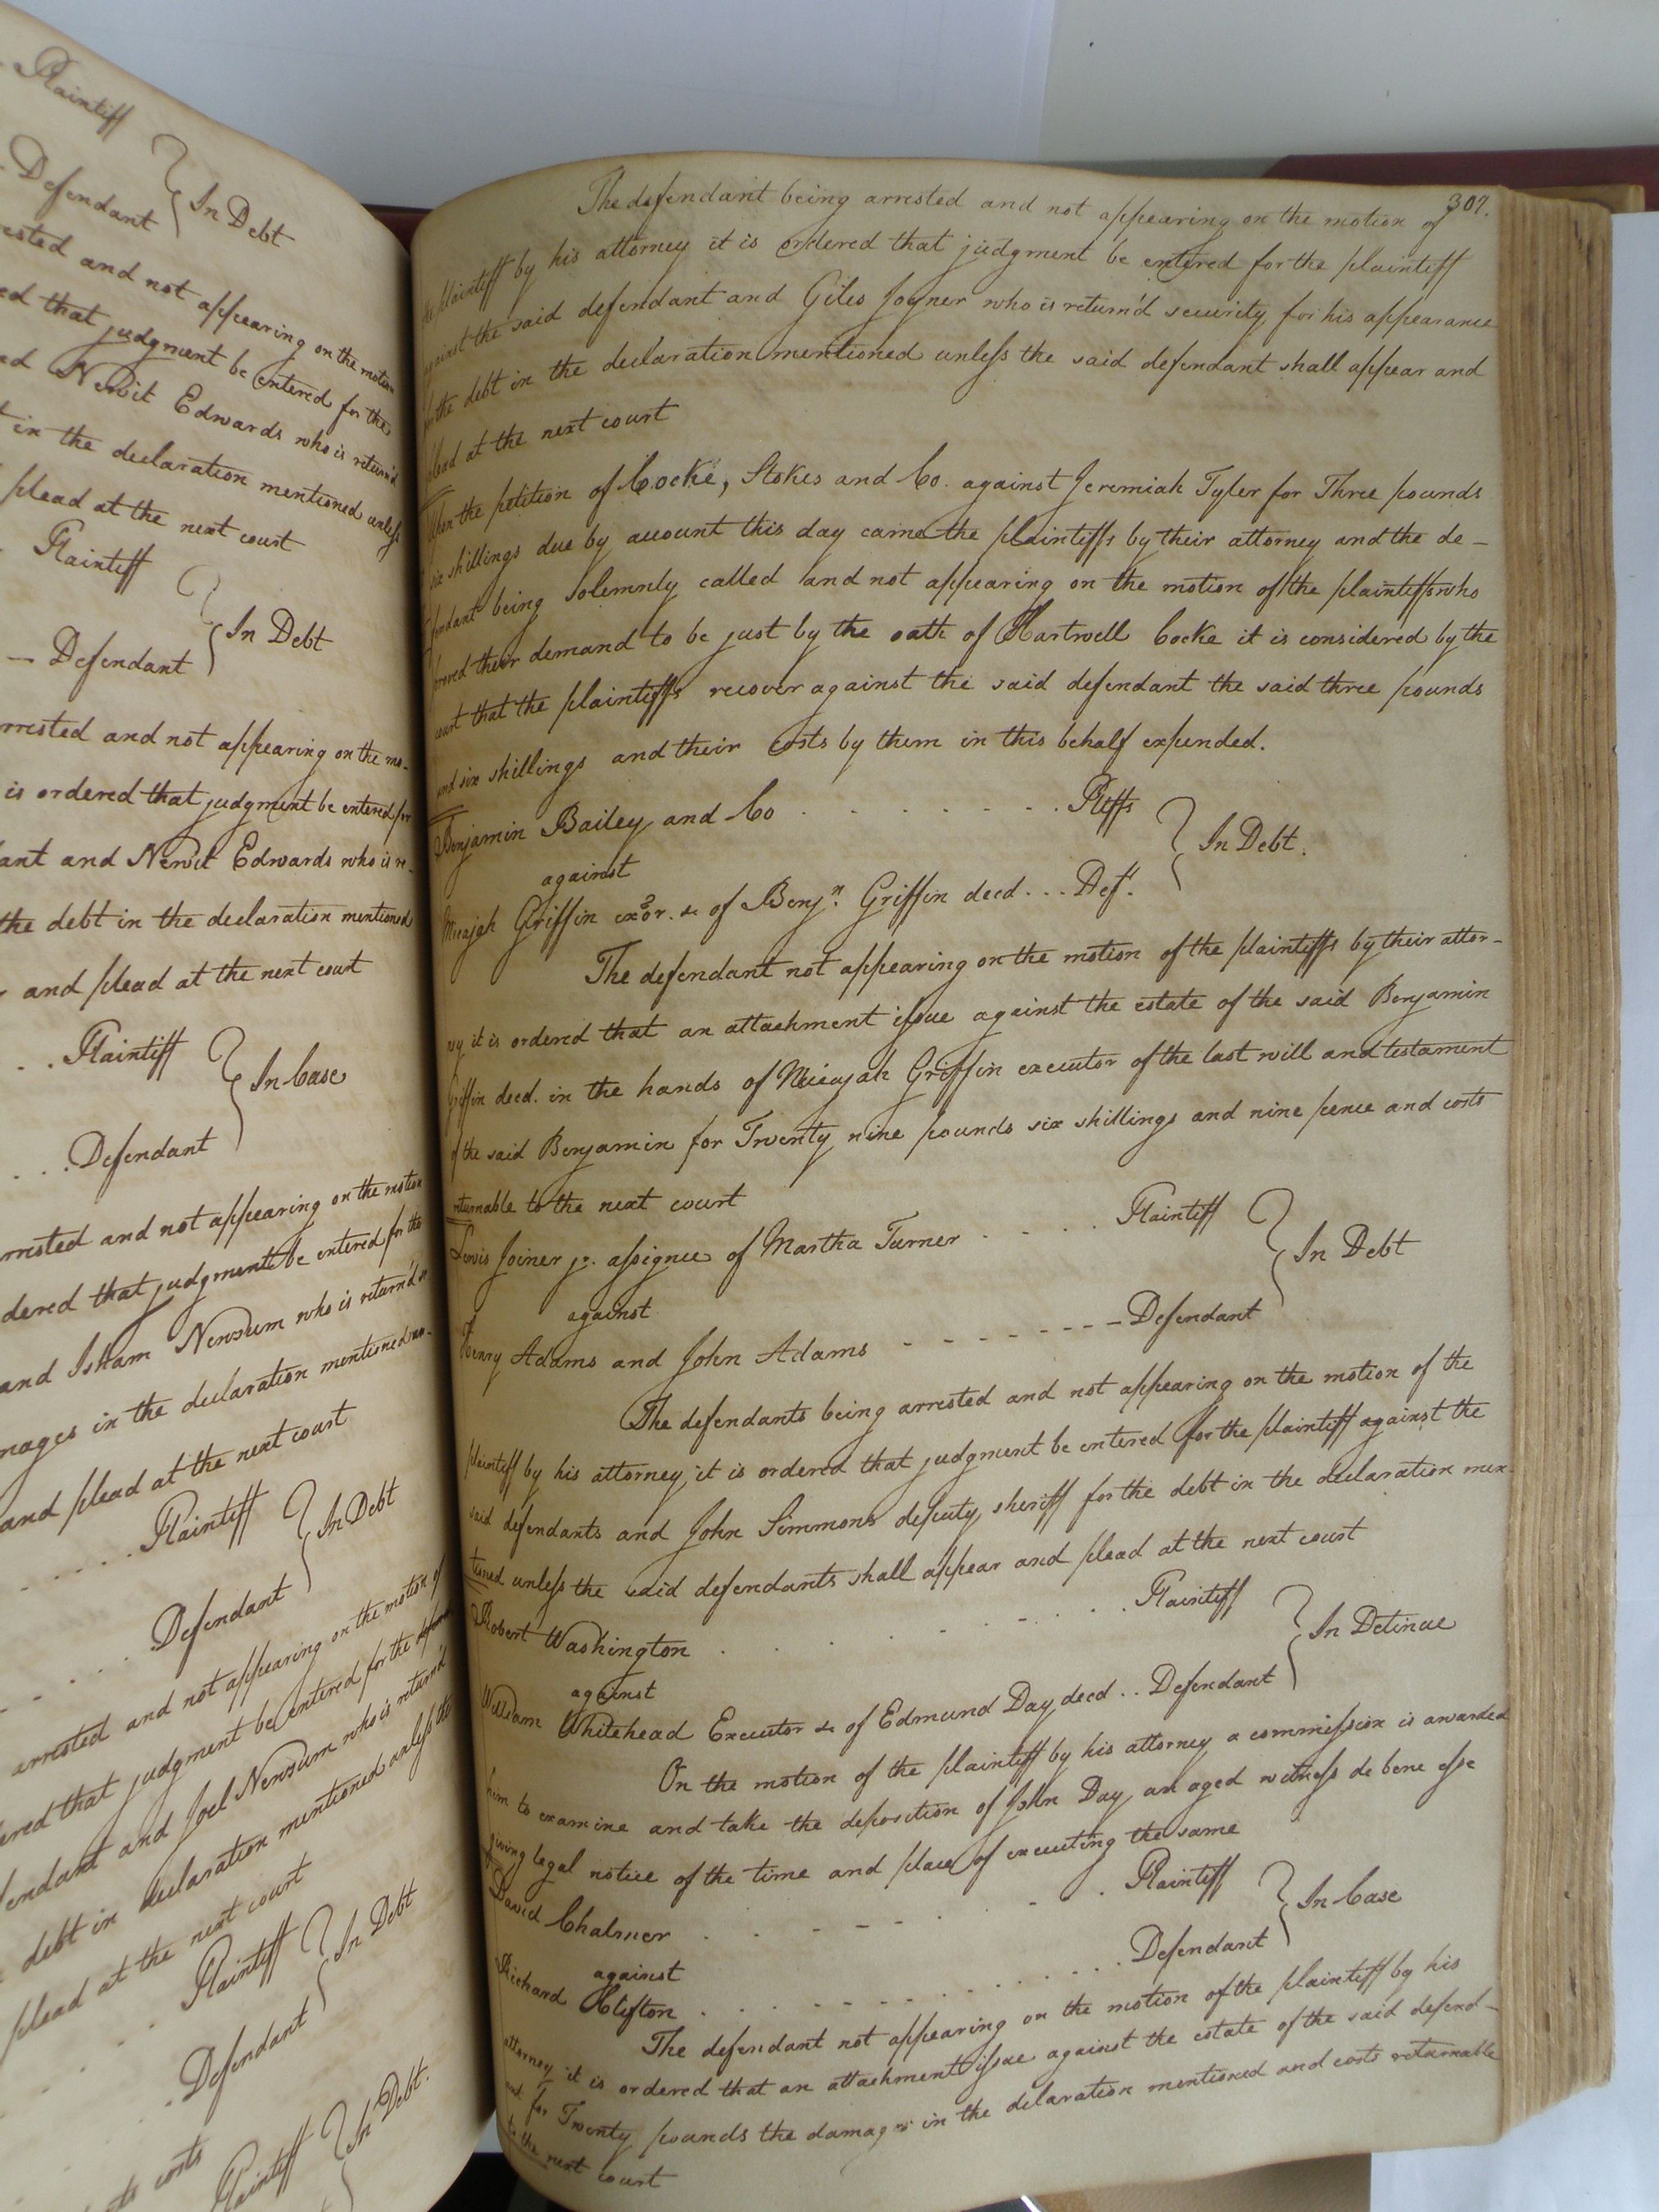 Plaintiff
In Debt
Defendant
ested and not appearing on the motion
ed that judgment be entered for the
nd Newit Edwards who is return'd
t in the declaration mentioned unless
plead at the next court
Plaintiff
In Debt
Defendant
rrested and not appearing on the mo-
is ordered that judgment be entered for
ant and Newit Edwards who is re-
the debt in the declaration mentioned
r and plead at the next court
Plaintiff
In Case
Defendant
rrested and not appearing on the motion
dered that judgment be entered for the
and Isham Newsum who is return'd
mages in the declaration mentioned un-
and plead at the next court
Plaintiff
In Debt
Defendant
arrested and not appearing on the motion of
ered that judgment be entered for the
endant and Joel Newsum who is return'd
debt in declaration mentioned unless the
plead at the next court
Plaintiff
In Debt
Defendant
Plaintiff
In Debt.
costs
307.
The defendant being arrested and not appearing on the motion of
the plaintiff by his attorney it is ordered that judgment be entered for the plaintiff
against the said defendant and Giles Joyner who is return'd security for his appearance
for the debt in the declaration mentioned unless the said defendant shall appear and
plead at the next court
Upon the petition of Cocke, Stokes and Co. against Jeremiah Tyler for Three pounds
six shillings due by account this day came the plaintiffs by their attorney and the de-
fendant being solemnly called and not appearing on the motion of the plaintiffs who
proved their demand to be just by the oath of Hartwell Cocke it is considered by the
court that the plaintiffs recover against the said defendant the said three pounds
and six shillings and their costs by them in this behalf expended.
Benjamin Bailey and Co . . . . . . . Pltffs
against
In Debt.
Micajah Griffin exor. &c of Benjn. Griffin decd . . . Deft.
The defendant not appearing on the motion of the plaintiffs by their attor-
ney it is ordered that an attachment issue against the estate of the said Benjamin
Griffin decd. in the hands of Micajah Griffin executor of the last will and testament
of the said Benjamin for Twenty nine pounds six shillings and nine pence and costs
returnable to the next court
Lewis Joiner jr. assignee of Martha Turner . . . . Plaintiff
against
In Debt
Henry Adams and John Adams - - - - - - - - Defendant
The defendants being arrested and not appearing on the motion of the
plaintiff by his attorney it is ordered that judgment be entered for the plaintiff against the
said defendants and John Simmons deputy sheriff for the debt in the declaration men-
tioned unless the said defendants shall appear and plead at the next court
Robert Washington . . . . . . . . Plaintiff
against
In Detinue
William Whitehead Executor &c of Edmund Day decd . . Defendant
On the motion of the plaintiff by his attorney a commission is awarded
him to examine and take the deposition of John Day an aged witness de bene esse
giving legal notice of the time and place of executing the same
David Chalmer . . . . . . . . Plaintiff
against
In Case
Richard Clifton . . . . . . . . . . Defendant
The defendant not appearing on the motion of the plaintiff by his
attorney it is ordered that an attachment issue against the estate of the said defend-
ant for Twenty pounds the damages in the declaration mentioned and costs returnable
to the next court